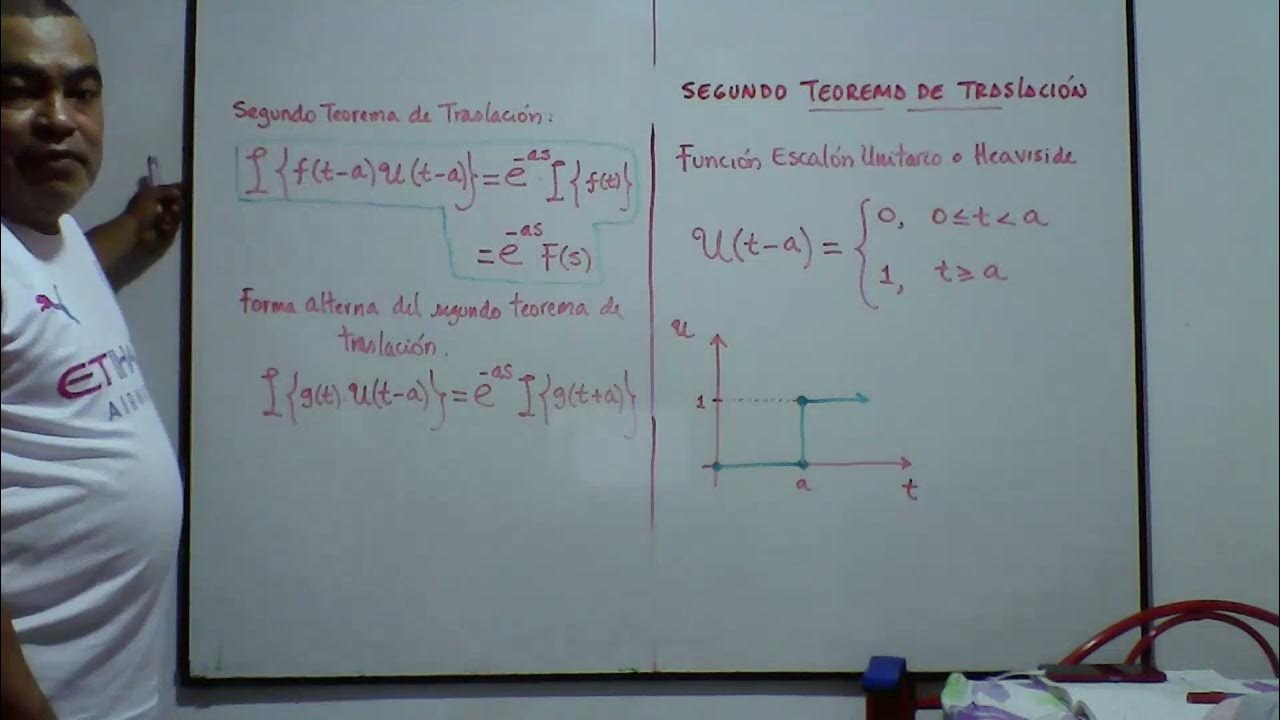 Segundo Teorema de Traslación:
ℒ{f(t-a)𝒰(t-a)}=e^-as ℒ{f(t)}
=e^-as F(s)
Forma alterna del segundo teorema de
traslación.
ℒ{g(t) 𝒰(t-a)}=e^-as ℒ{g(t+a)}
SEGUNDO TEOREMA DE TRASLACIÓN
Función Escalón Unitareo o Heaviside
𝒰(t-a) = { 0, 0≤t<a
1, t≥a
𝒰
1
a
t
ETIHA
AIRW